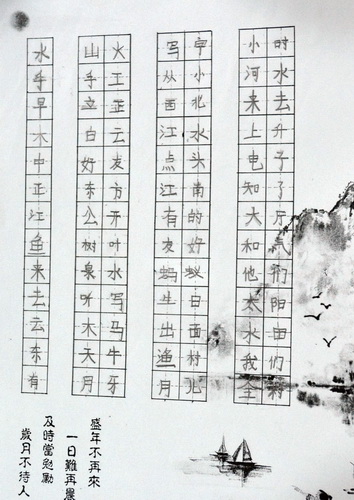 时水去升子了斤气们阳由们村
小河来上电知大和他太水我全
中小北水头南的好蚁白面村儿
写从西江点江有友蚂生出渔月
火工正云发方开叶水写马牛牙
山手立白好东公树泉叶木天月
水手早木中正江鱼来去云东有
盛年不再來
一日難再晨
及時當勉勵
歲月不待人